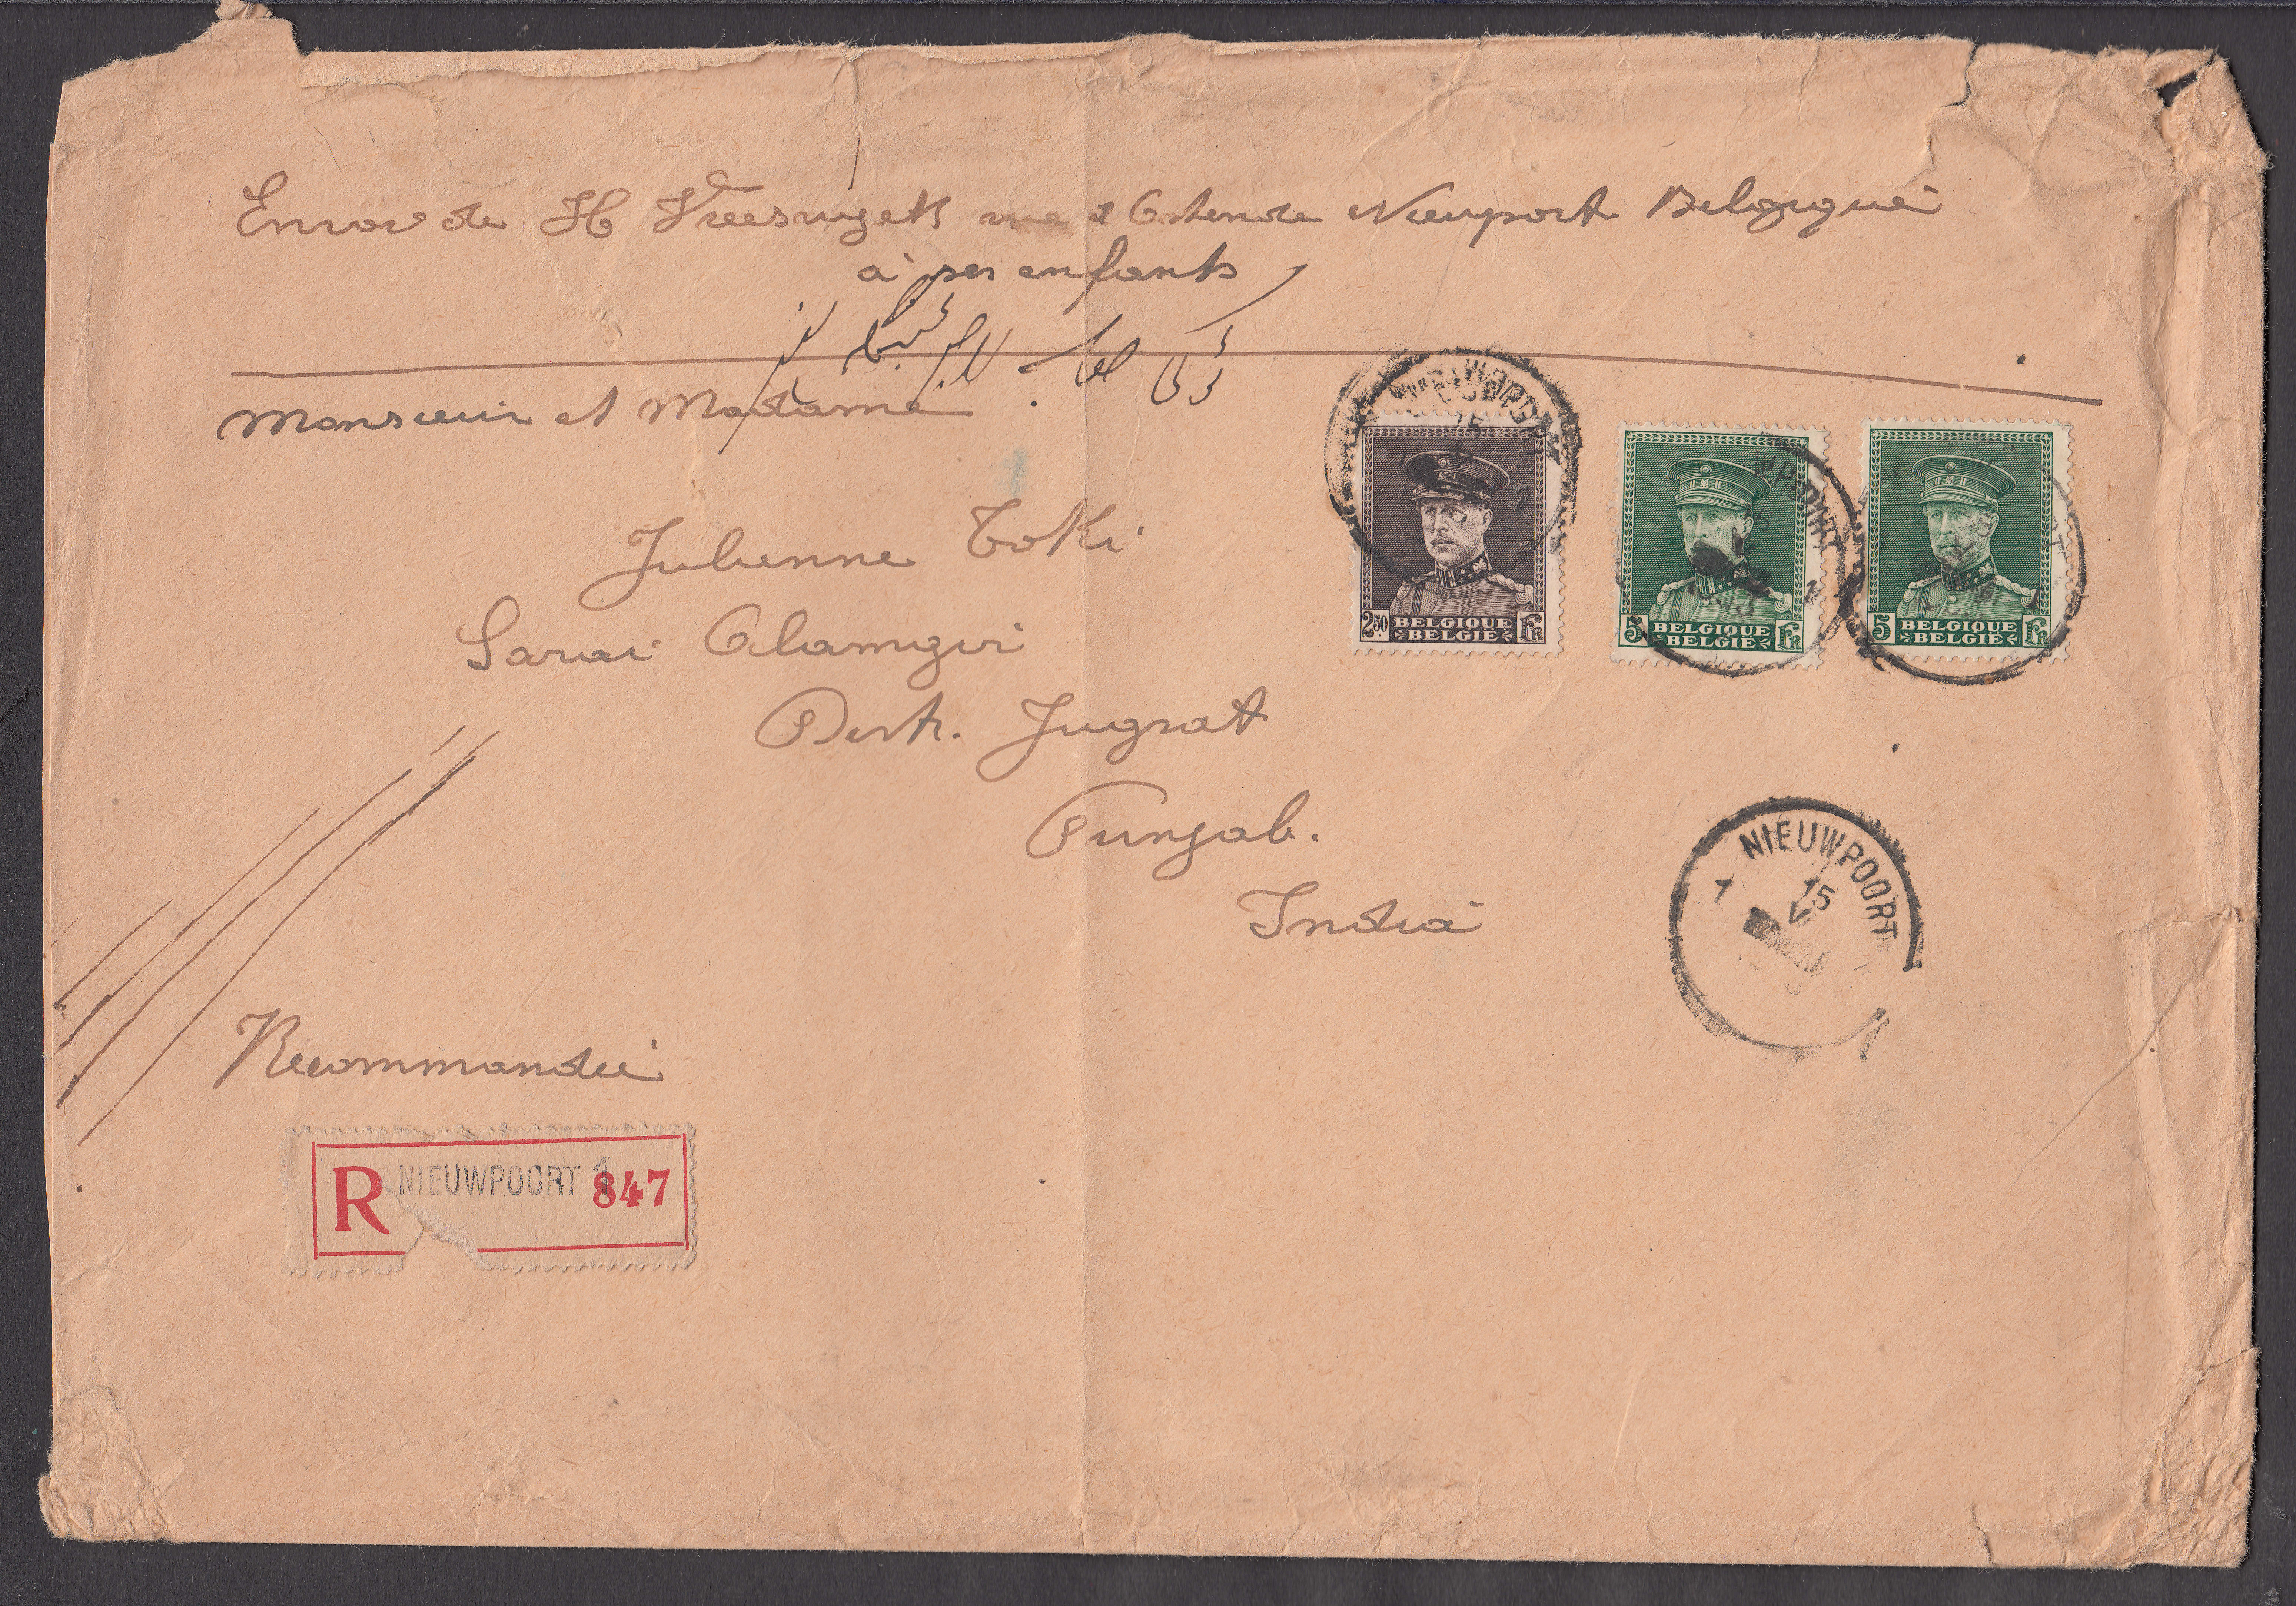 Envoi de H rue d'Ostende Nieuport Belgique
à ses enfants
Monsieur et Madame
Julienne Toki
Sarai Alamgiri
Distr. Jugrat
Punjab.
India
Recommandée
R NIEUWPOORT 1 847
NIEUWPOORT
15
2.50 BELGIQUE BELGIË FR
5 BELGIQUE BELGIË FR
5 BELGIQUE BELGIË FR
NIEUWPOORT
1 15
V
1